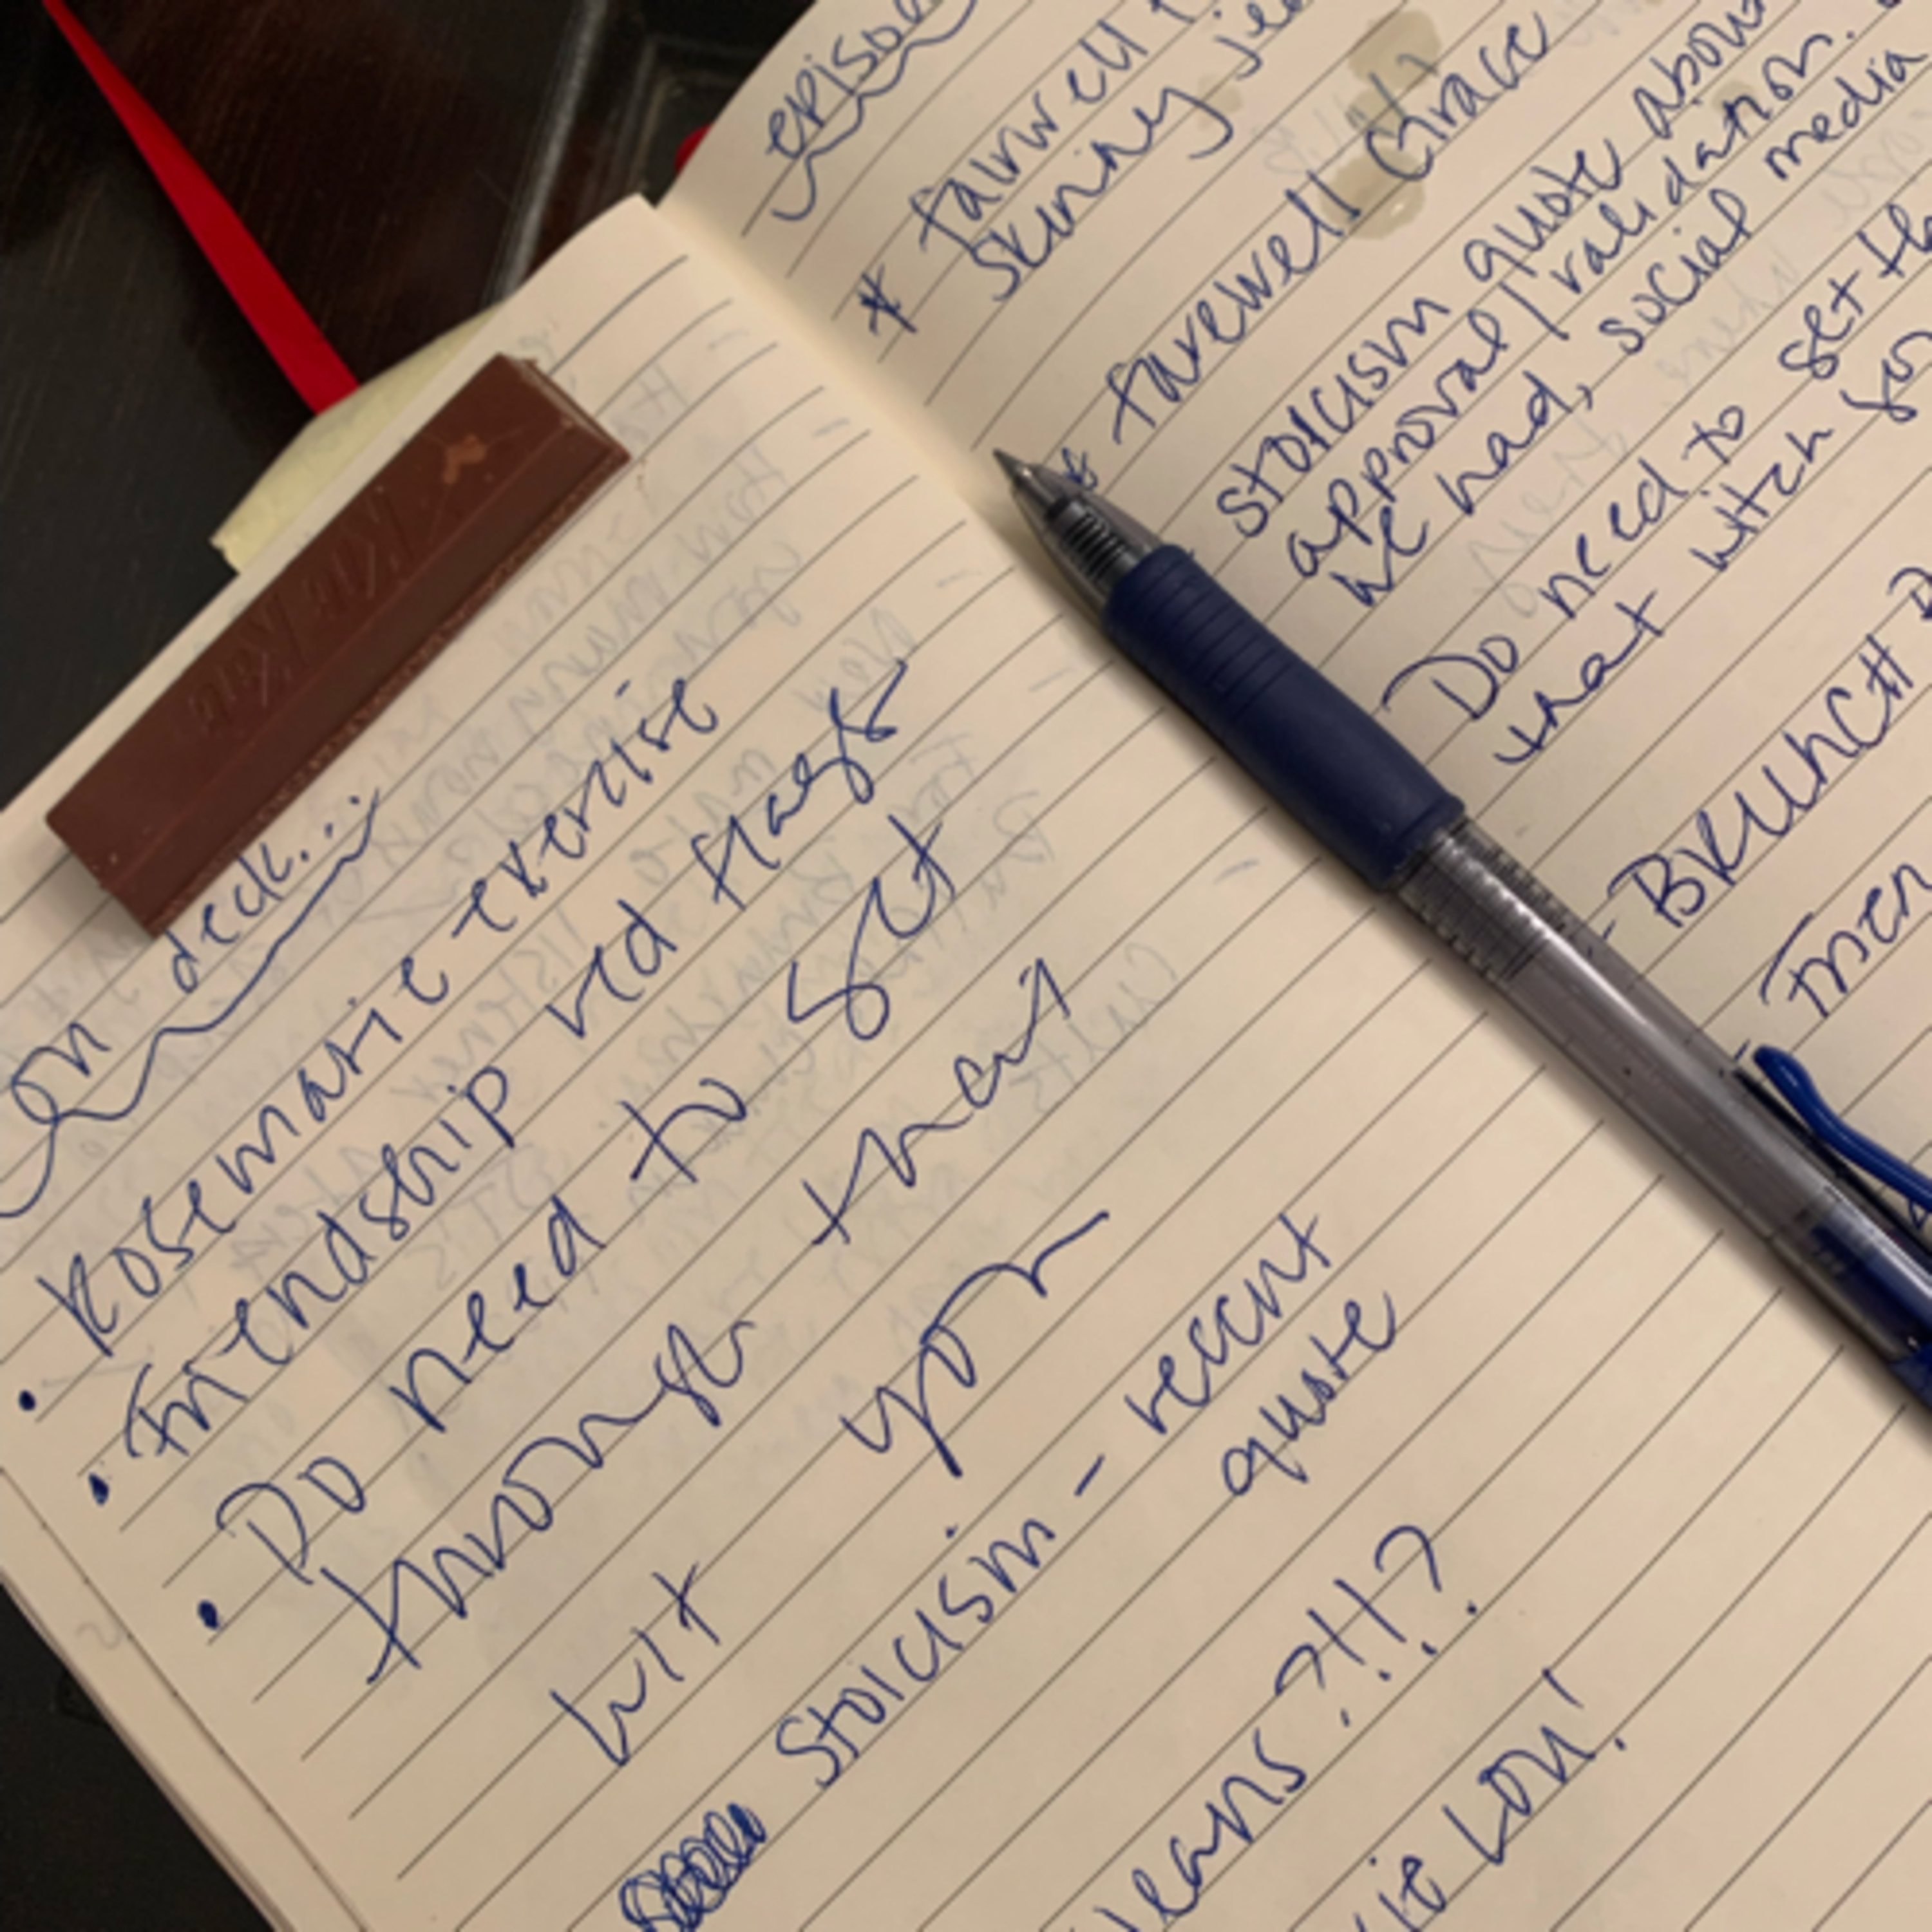 Kit Kat
on deck...
Rosemarie exercise
• Friendship red flags
• Do need to set
• through that
wit you
Stoicism - recent
quote
eans?!!?
ie Lou!
episode
* fairwell
skinny je
* farewell Grace
stoicism quote about
approval / validation.
we had, social media
Do need to set th
that witch yo
- BRUNCH
men